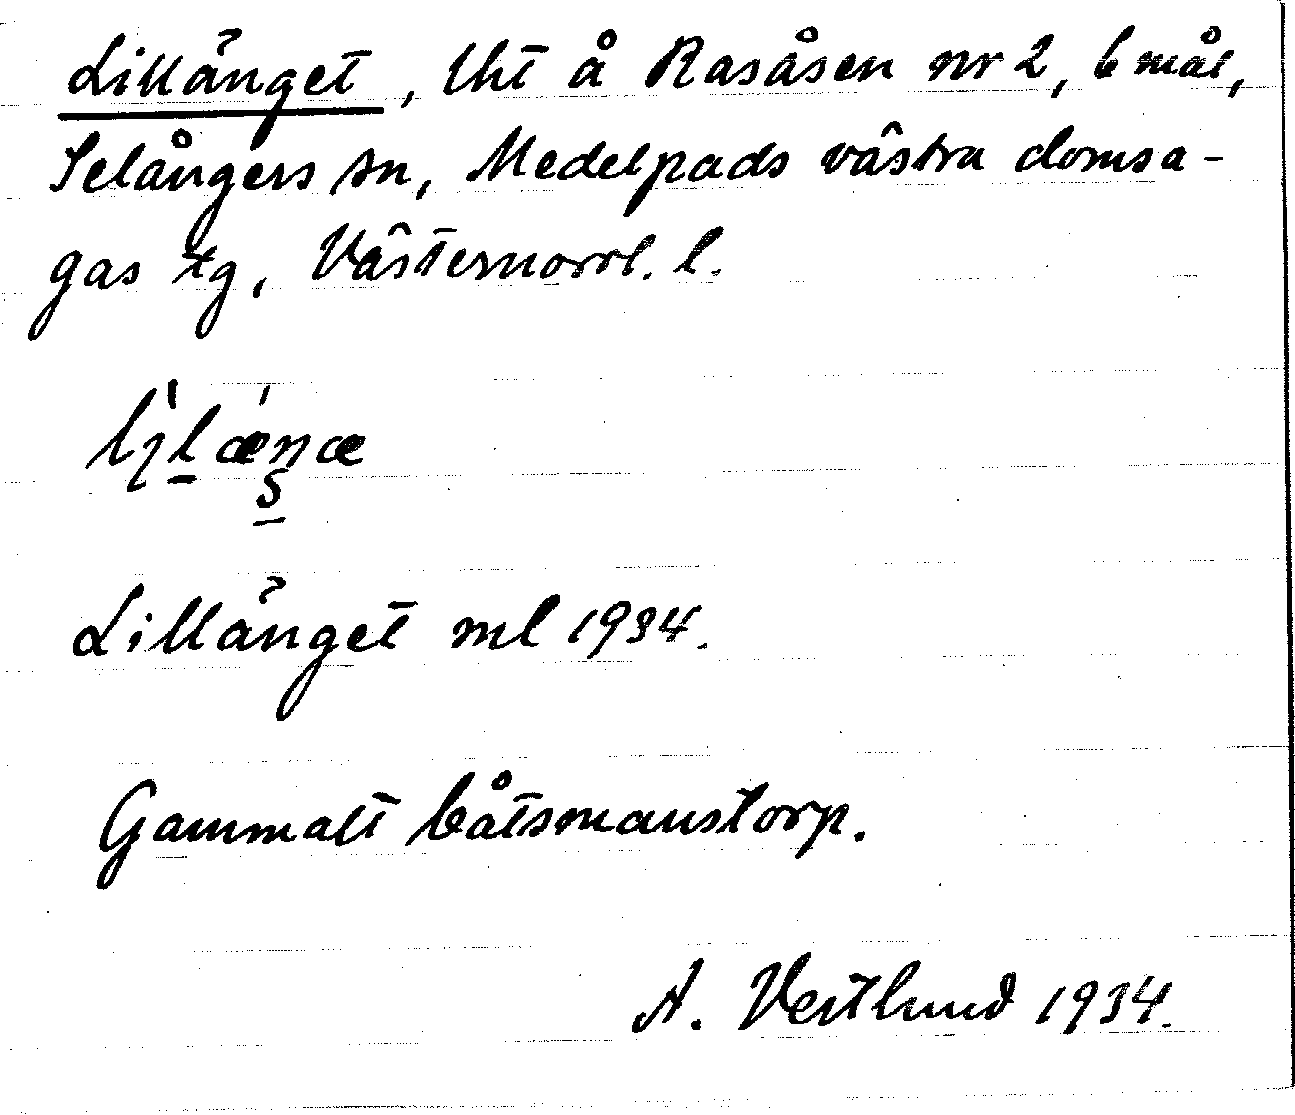 Lillänget, lht å Rasåsen nr 2, 6 mål,
Selångers sn, Medelpads västra domsa-
gas tg, Västernorrl. l.
Lillänget ml 1934.
Gammalt båtsmanstorp.
A. Vestlund 1934.